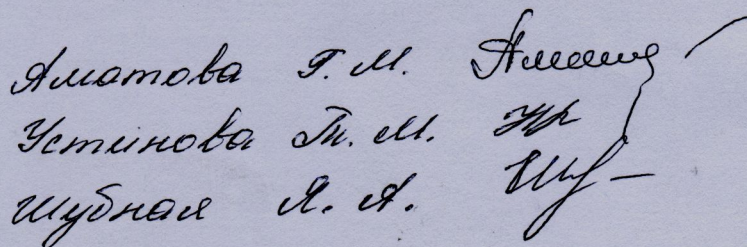 Яматова Г. М.
Устинова Т. М.
Шубная Л. А.